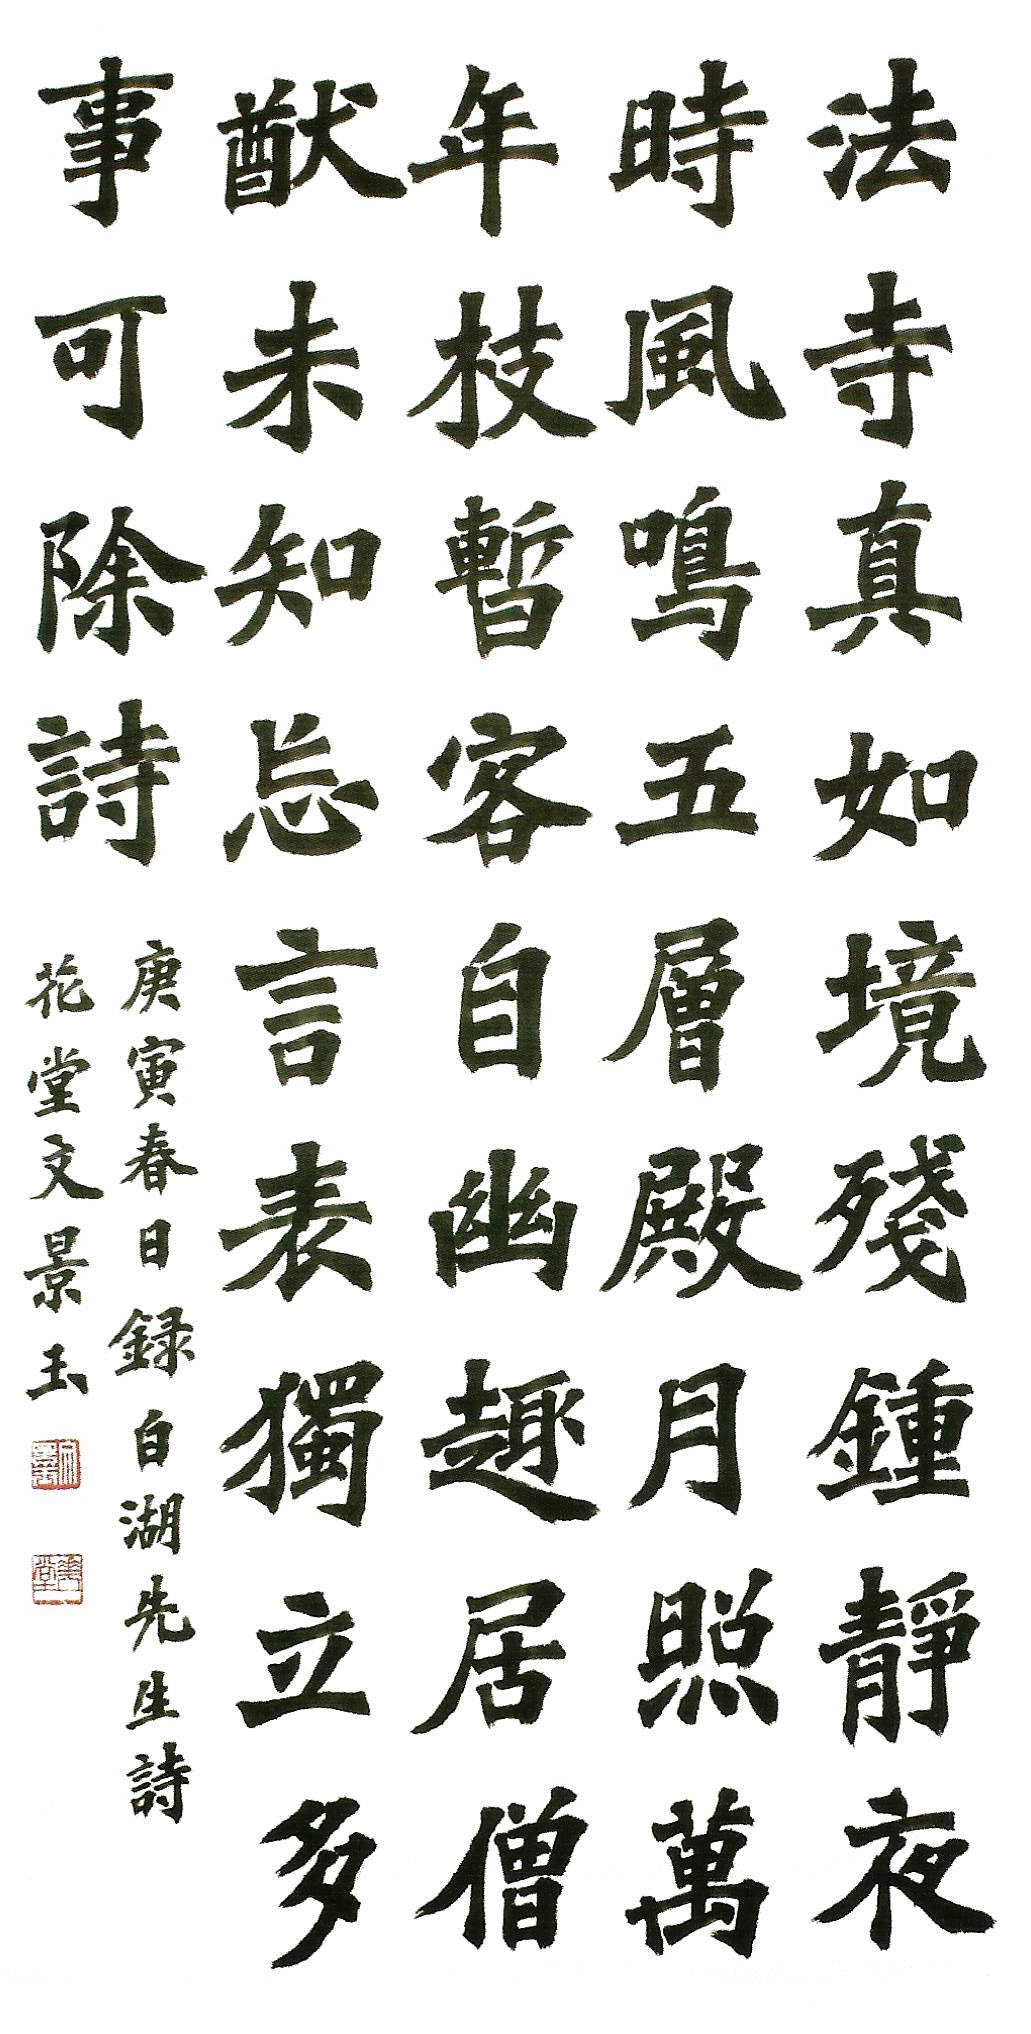 法寺真如境殘鍾靜夜
時風鳴五層殿月照萬
年枝暫客自幽趣居僧
猷未知忘言表獨立多
事可除詩
庚寅春日録白湖先生詩
花堂文景玉